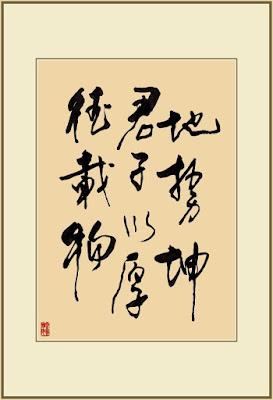 地势坤
君子以厚
德載物